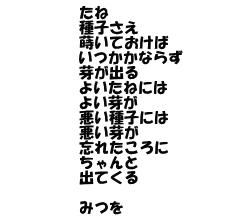 たね
種子さえ
蒔いておけば
いつかかならず
芽が出る
よいたねには
よい芽が
悪い種子には
悪い芽が
忘れたころに
ちゃんと
出てくる

みつを